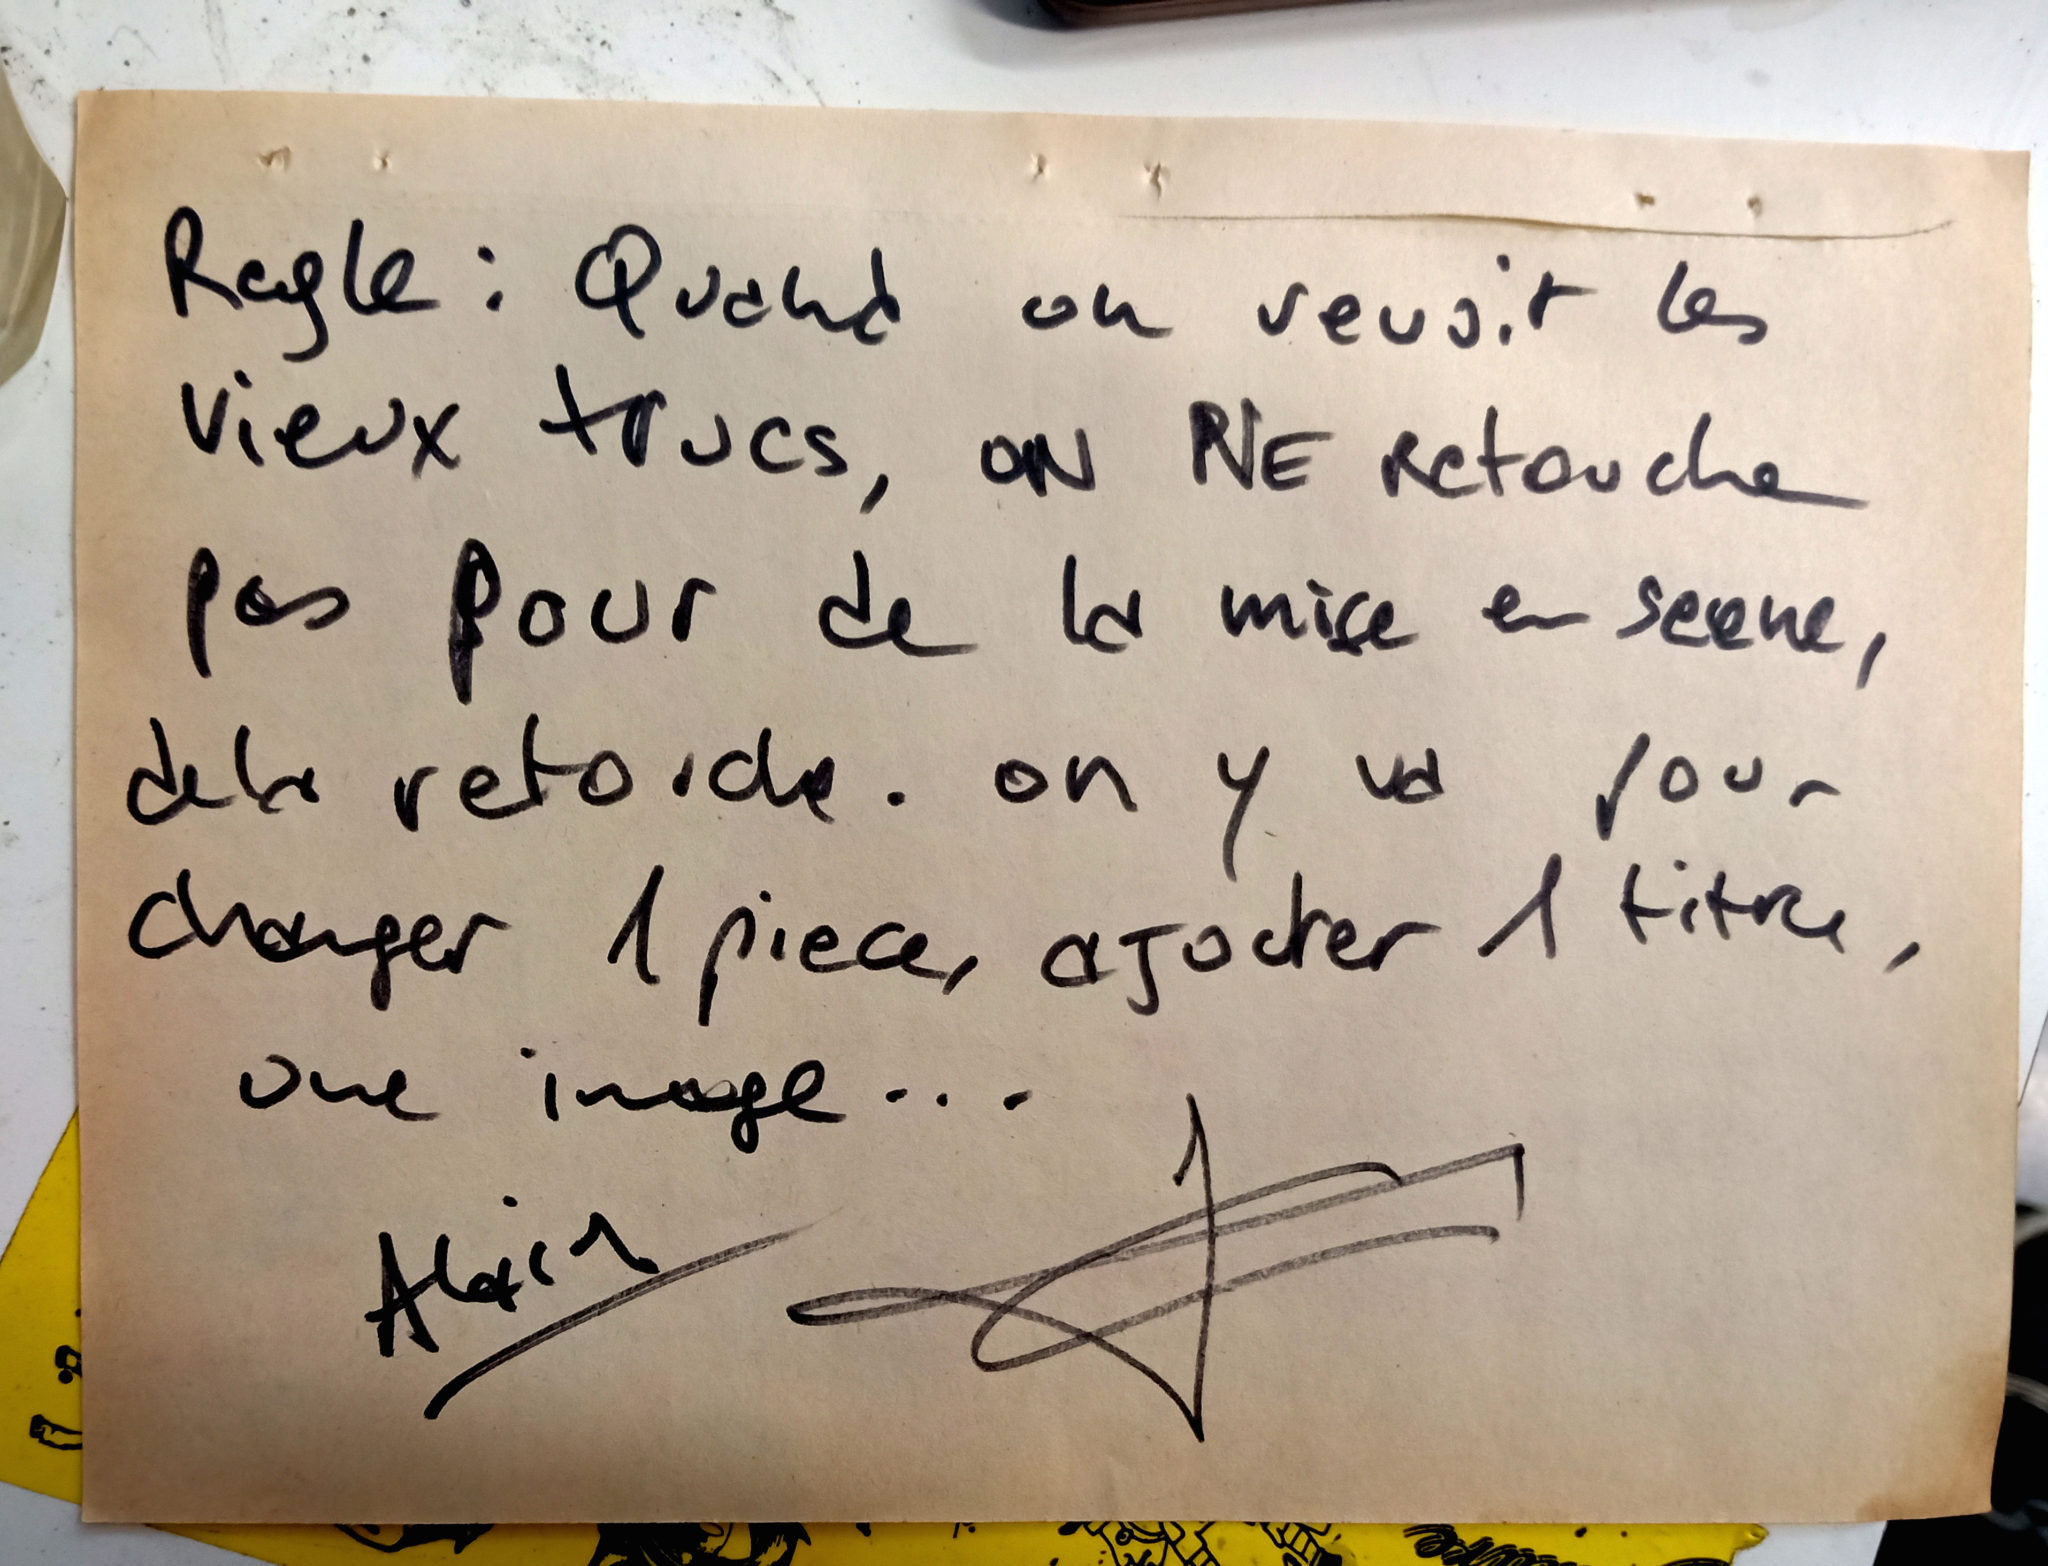 Regle : Quand on revoit les
vieux trucs, ON NE Retouche
pas pour de la mise en scene,
de la retouche. on y va pour
changer 1 piece, ajouter 1 titre,
une image...
Alain